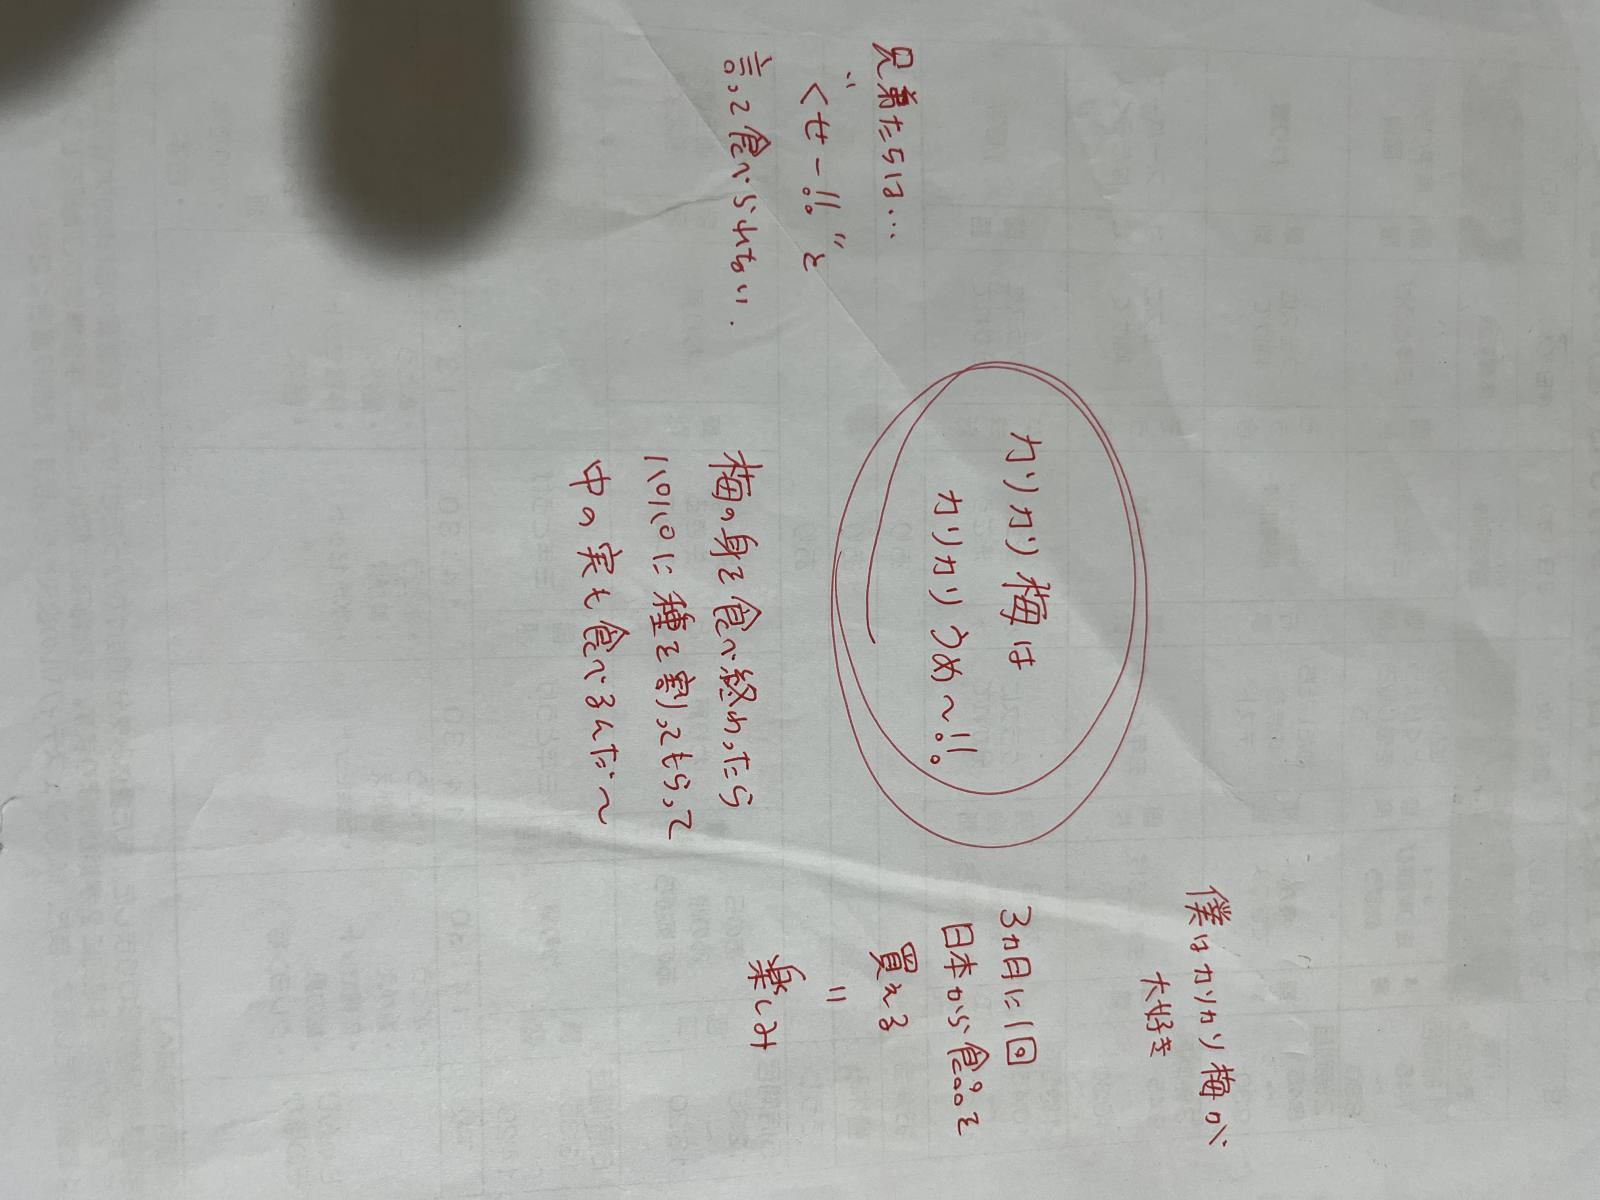 僕はカリカリ梅が
大好き
3カ月に1回
日本から食品を
買える
=
楽しみ
カリカリ梅は
カリカリうめ〜!!
梅の身を食べ終わったら
パパに種を割ってもらって
中の実も食べるんだ〜
兄弟たちは…
"くせー!!"と
言って食べられない.